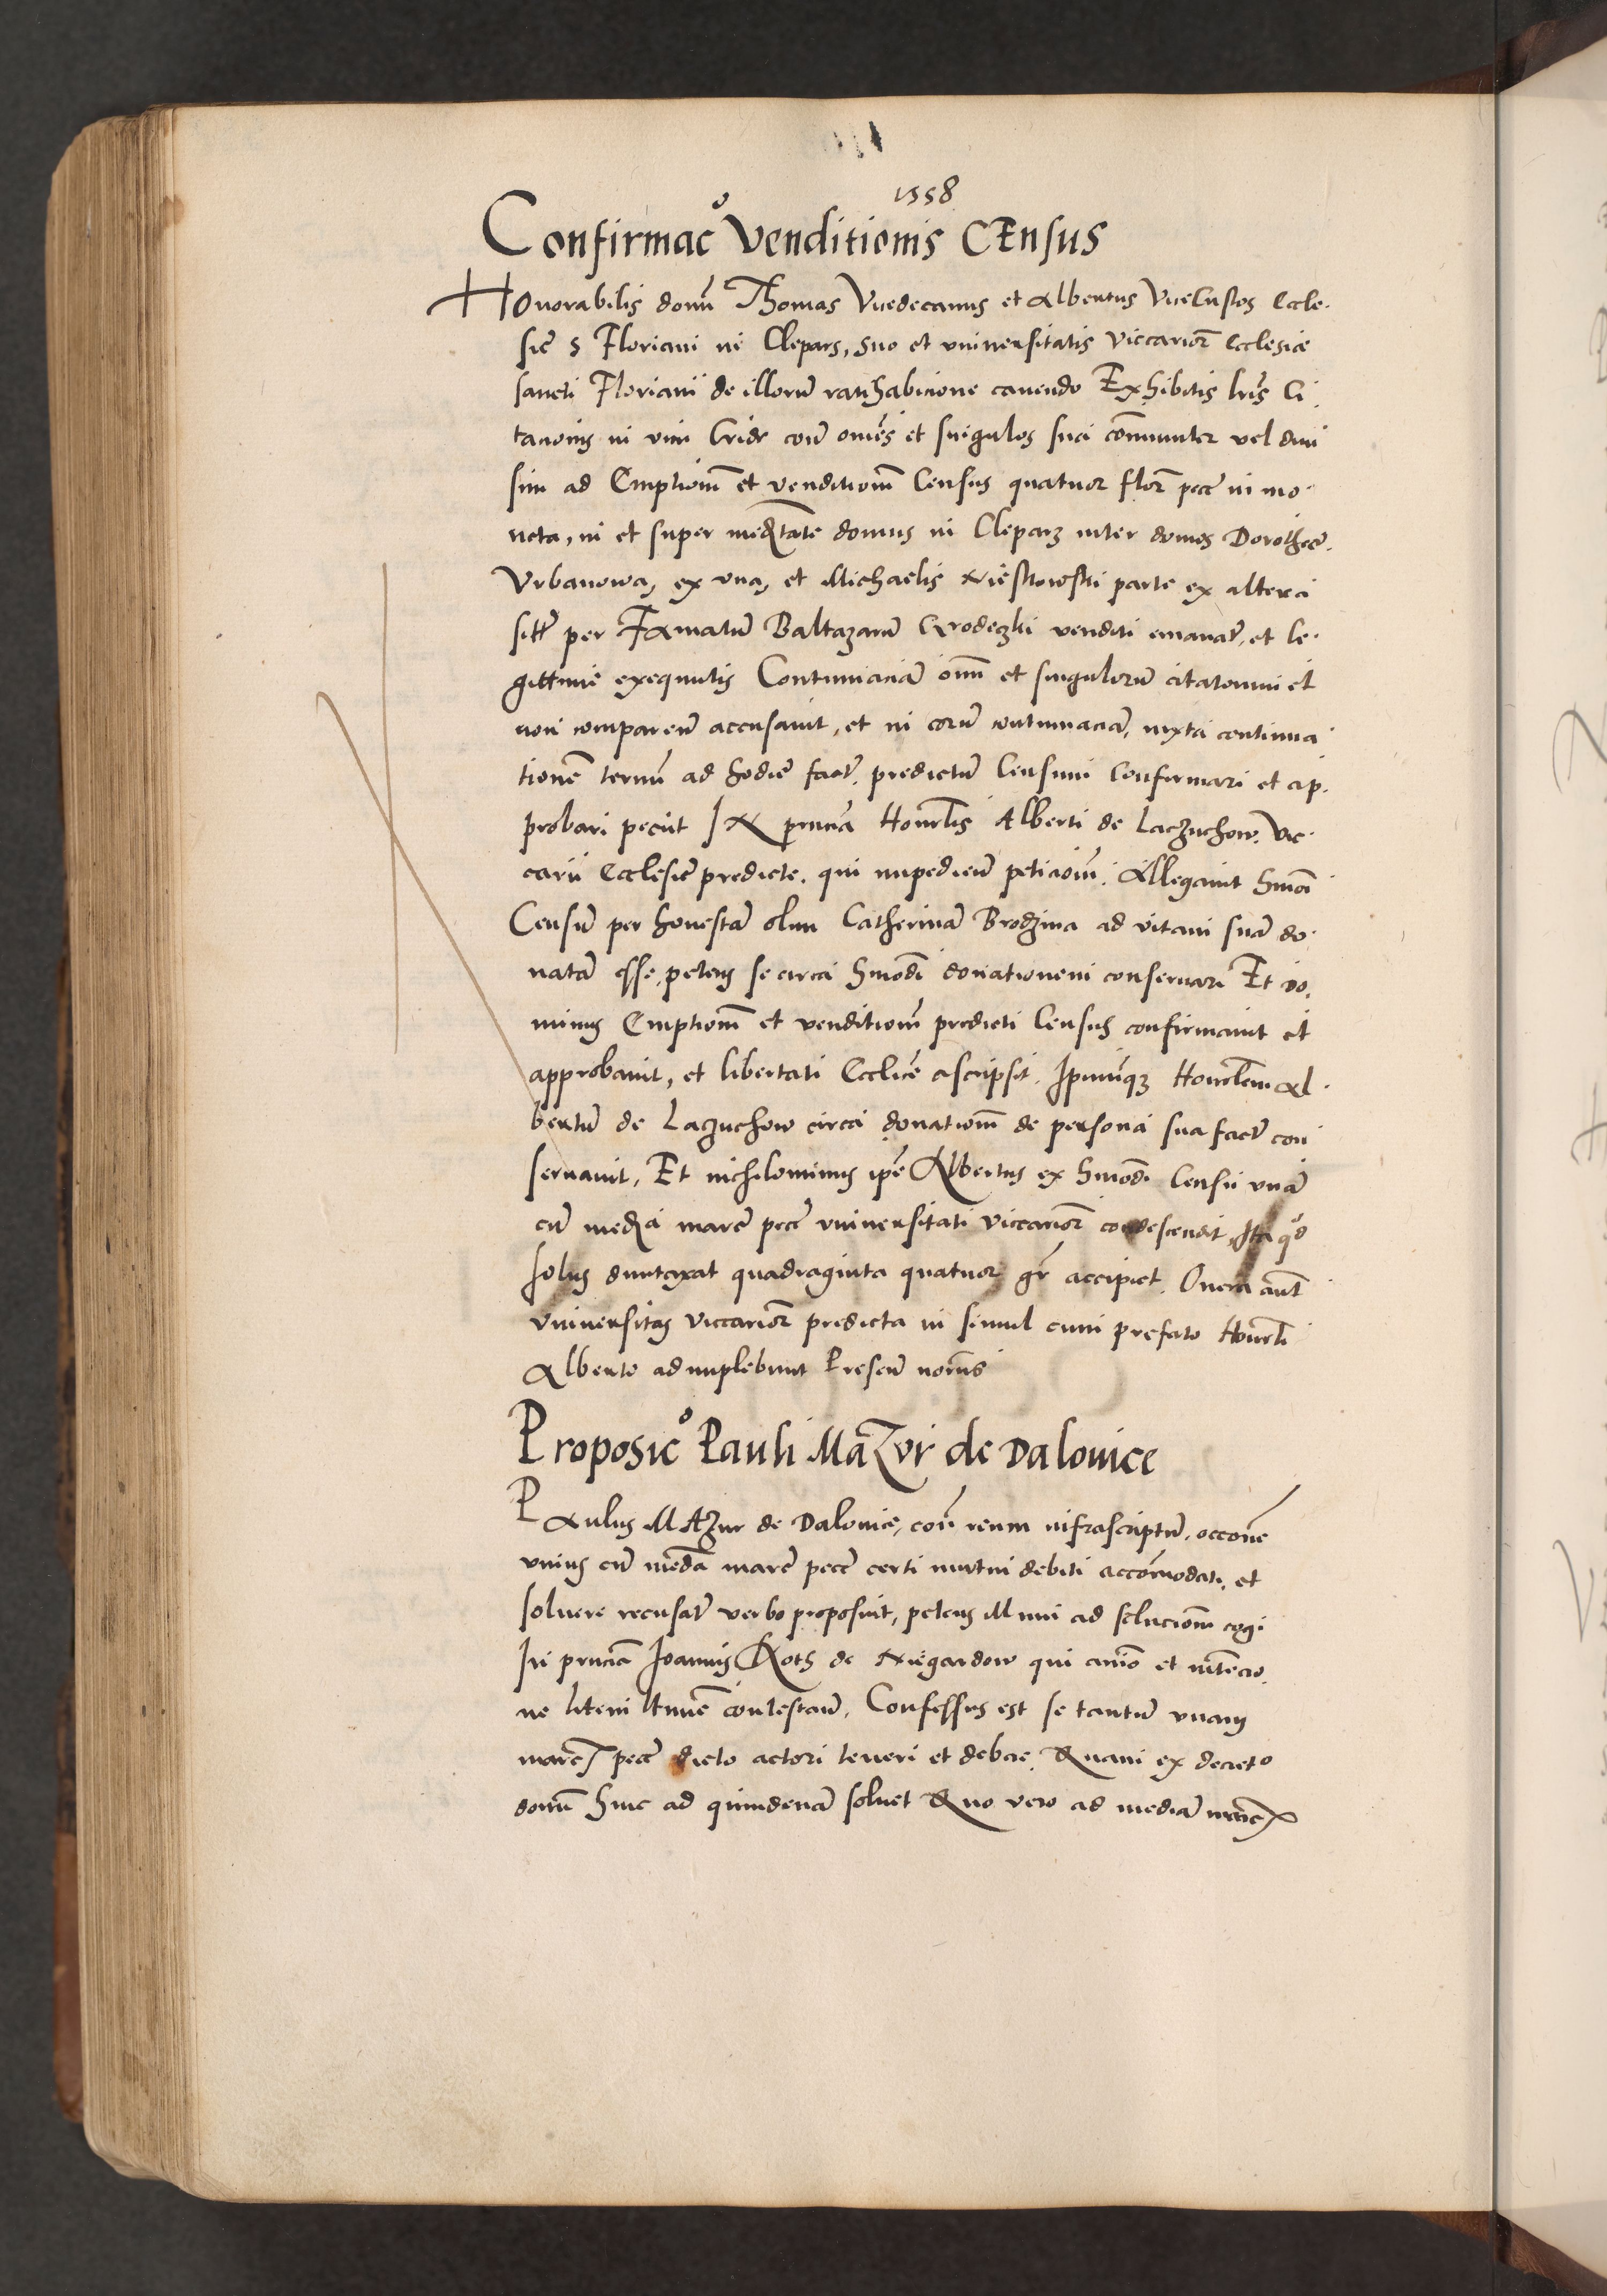 1558
Confirmac͠o Venditionis CEnsus
Honorabilis domi͠ Thomas Vicedecanus et Albertus ViceCustos Eccle-
sie S Floriani in Clepars, suo et vniuersitatis Viccarior͠ Ecclesiae
sancti Floriani de illorum̄ ratihabicione cauendo Exhibitis lr͠is Ci-
tac͠onis in vim Cride con͠ omn͠es et singulos sua com͠muniter vel diui
sim ad Emptionem̄ et venditionem̄ Census quatuor flor͠ pec͠ in mo-
neta, in et super medietate domus in Cleparz inter domos Dorothee
Vrbanowa, ex vna, et Michaelis parte ex altera
sitt͠ per Famatum̄ Baltazarum̄ Grodeczki venditi emanat͠, et le-
gittime exequutis Contumacia͠ om̄m̄ et singulorum̄ citatorum et
non comparen͠ accusauit, et in eorum̄ contumaciam̄, iuxta continua
tionem̄ termi͠ ad hodie͠ fact͠, predictum̄ Censum Confirmari et ap-
probari peciit IN pn͠cia Hon͠rlis Alberti de Laczuchow Vic-
carii Ecclesie predicte, qui impedien͠ peticiom͠, Allegauit hm͠oi
Censum̄ per honestam̄ olim Catherinam̄ Brodzina ad vitam suam̄ do-
natam̄ esse, petens se circa hm͠odi donationem conseruari Et do-
minus Emptionem̄ et venditionem̄ predicti Census confirmauit et
approbauit, et libertati Eccl͠ice ascripsit, Ipsumq3 Hon͠rlem Al-
bertum̄ de Laczuchow circa donationem̄ de persona sua fact͠ con
seruauit, Et nichilominus ip͠e Albertus ex hm͠odi Censu vnam̄
cum̄ media marc͠ pec͠ vniuersitati viccarior͠ condescendit, Ita q͠d
solus duntaxat quadraginta quatuor gr͠ accipiet. Onera aut͠
vniuersitas viccarior͠ predicta in simul cum prefato Hon͠rli
Alberto adimplebunt Presen͠ notariis
Proposic͠o Pauli Mazur de Dalouice
Paulus MAzur de Dalouice, con͠ reum infrascriptum̄, occ͠one
vnius cum̄ media marc͠ pec͠ certi mutui debiti accom͠modati, et
soluere recusat͠ verbo proposuit, petens illum ad solucionem̄ cogi
In pn͠cia Ioannis Koth de qui animo et intencio-
ne litem contestan͠, Confessus est se tantum̄ vnam
marc͠ pec͠ dicto actori teneri et debere, Quam ex decreto
domi͠ hinc ad quindenam̄ soluet Quo vero ad mediam̄ marc͠